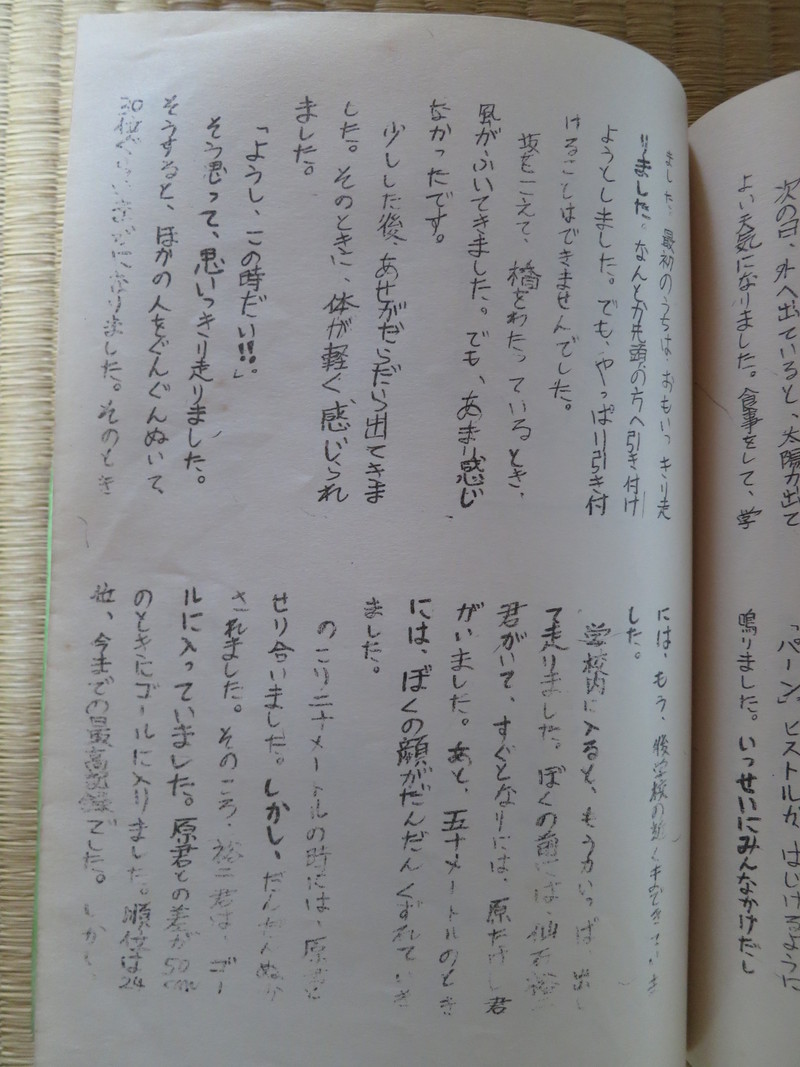 次の日、外へ出ていると、太陽が出て
よい天気になりました。食事をして、学
「パーン」ピストルが、はじけるように
鳴りました。いっせいにみんなかけだし
ました。最初のうちは、おもいっきり走
りました。なんとか先頭の方へ引き付け
ようとしました。でも、やっぱり引き付
けることはできませんでした。
坂をこえて、橋をわたっているとき、
風がふいてきました。でも、あまり感じ
なかったです。
少しした後、あせがだらだら出てきま
した。そのときに、体が軽く、感じられ
ました。
「ようし、この時だい!!」
そう思って、思いっきり走りました。
そうすると、ほかの人をぐんぐんぬいて、
20位ぐらい なりました。そのとき
には、もう、 学校の近くまできていま
した。
学校内に入ると、もう力いっぱい出し
て走りました。ぼくの前には、 裕二
君がいて、すぐとなりには、原たけし君
がいました。あと、五十メートルのとき
には、ぼくの顔がだんだんくずれていき
ました。
のこり二十メートルの時には、原君と
せり合いました。しかし、だんだんぬか
されました。そのころ、裕二君は、ゴー
ルに入っていました。原君との差が50cm
のときにゴールに入りました。順位は24
位、今までの最高記録でした。しかし、